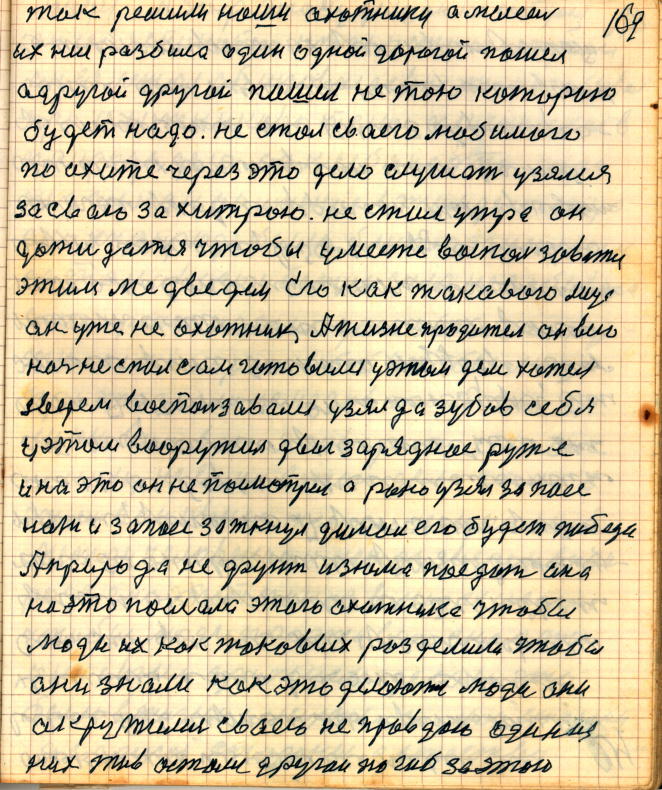 169
так решили наши охотники а желан
их не разбила один одной дорогой пошел
адругой другой пошел не тою которою
будет надо. не стал сваего любимого
по охите через это дело слушат узялся
засваю за хитрою. не стал утра он
дажидатся чтобы уместе воспользоватся
этим медведем Его как такавого
ан уже не охотник, Ажизне продател он вего
нач не стал сам готовили уэтом дел хотел
зверем воспользавался узял да зубов себя
уэтом вооружил двух зарядное руже
и на это он не посмотрел а рано узял запас
нож и запас заткнул думал его будет победа
Априрода не друт изюма поедат она
на это послала этого охотника чтобы
люди их как таковых разделили чтобы
они знали как это делают люди они
акружилися сваею не правдою один из
них жив остался другой погиб заэтого